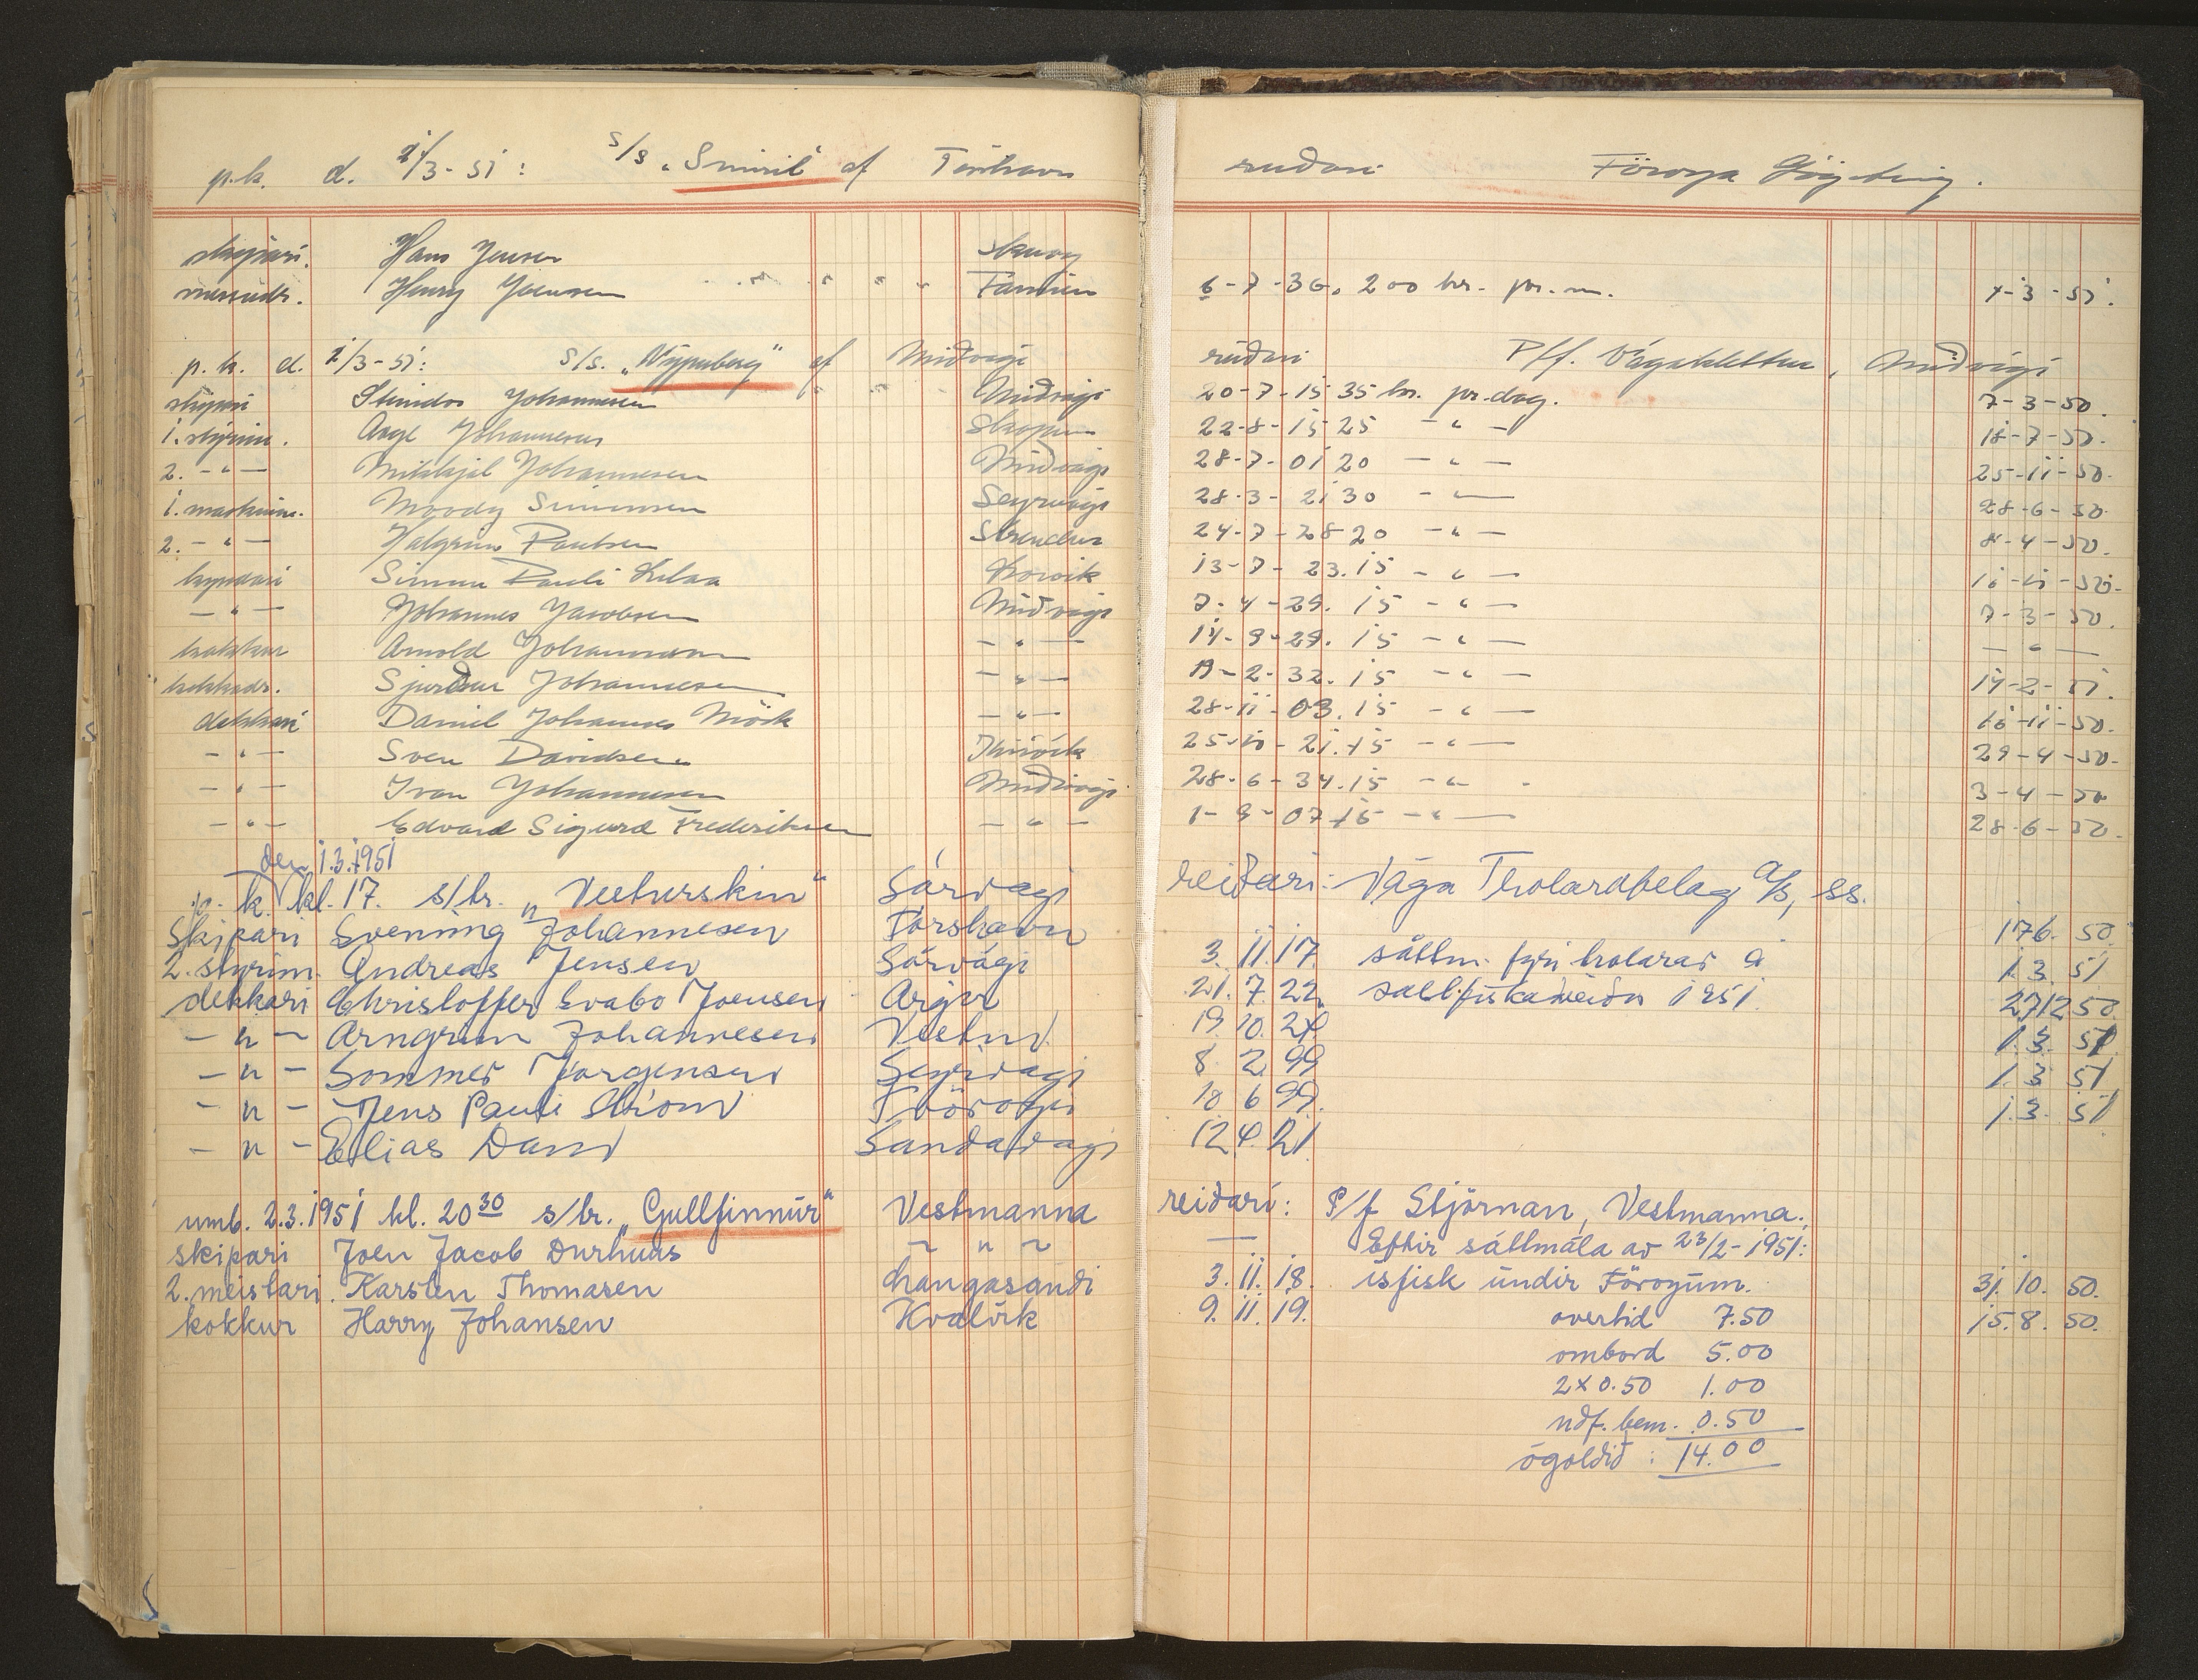 p.k. d. 1/3-51: s/s „Smiril" af Tórshavn reiðari Föroya Lögting.
skipari. Hans Jensen Skuvoy
messudr. Henry Joensen 6-7-36. 200 kr. pr. m. 1-3-51.
p. k. d. 1/3-51: s/s. „Nypuberg" af Miðvági reiðari P/f. Vágaklettur, Miðvági
skipari Johannesen Miðvági 20-7-15 35 kr. pr. dag. 7-3-50.
1. stýrim. Aage Johannesen 22-8-15 25 - " - 18-7-50.
2. - " - Mikkjal Johannesen Miðvági 28-7-01 20 - " - 25-11-50.
1. maskinm. Moody Simonsen Seyrvági 28-3-21 30 - " - 28-6-50.
2. - " - Halgrim Poulsen Strendur 24-7-28 20 - " - 8-4-50.
kyndari Simun Pauli 13-7-23. 15 - " -
- " - Johannes Jacobsen Miðvági 7-4-29. 15 - " - 7-3-50.
kokkur Arnold Johannesen - " - 14-9-29. 15 - " - - " -
kokkadr. Sjurður Johannesen - " - 19-2-32. 15 - " - 14-2-51.
dekkari Daniel Johannes Mörk - " - 28-11-03. 15 - " - 16-11-50.
- " - Sven Davidsen 25-10-21. 15 - " - 29-4-50.
- " - Ivan Johannesen Miðvági 28-6-34. 15 - " - 3-4-50
- " - Edvard Sigurd Frederiksen - " - 1-9-07 15 - " - 28-6-50.
den 1.3.1951
p. k. kl. 17. s/tr. „Vesturskin" Sörvági reiðari: Vága Trolarafelag a/s, ss.
Skipari Svenning Johannesen Tórshavn 17 6. 50.
2. stýrim. Andreas Jensen Sörvági 3. 11. 17. sáttm. fyri trolarar á 1. 3. 51
dekkari Christoffer Svabo Joensen Argir 21. 7. 22. saltfiskaveiðu 1951. 27 12 50.
- " - Arngrim Johannesen Vestm. 19. 10. 24. 1. 3. 51
- " - Sommer Jørgensen Seyrvági 8. 2. 99 1. 3 51
- " - Jens Pauli Strom Tvöroyri 18 6 99. 1. 3. 51
- " - Elias Dam Sandavági 12 4. 21
umb. 2.3.1951 kl. 20 30 s/tr. „Gullfinnur" Vestmanna reiðari: P/f Stjörnan, Vestmanna.
skipari Joen Jacob Durhuus ~ " ~ — Eftir sáttmála av 23/2-1951:
2. meistari. Karsten Thomasen Langasandi 3. 11. 18. ísfisk undir Föroyum. 31. 10. 50.
kokkur Harry Johansen Hvalvík 9. 11. 19. overtid 7.50 15. 8. 50.
ombord 5.00
2 x 0.50 1.00
ndf. bem. 0.50
ógoldið: 14.00